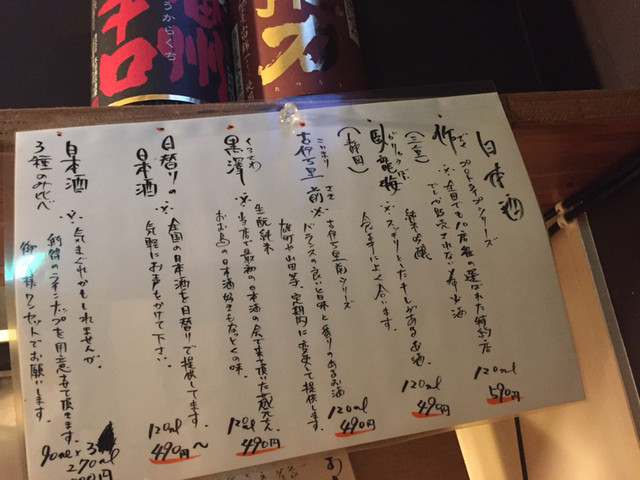 日本酒
作 ざく プロトタイプシリーズ
(三重) ※全国でも10店程の選ばれた特約店
でしか販売されない希少酒
120ml
590円
臥龍梅 がりゅうばい 純米吟醸
(静岡) ※スッキリといたキレがあるお酒。
食事によく合います。
120ml
490円
古伊万里 前 こいまり さき
※古伊万里前シリーズ
バランスの良い旨味と香りのあるお酒
雄町や山田等、定期的に変えて提供します。
120ml
490円
黒澤 くろさわ 生酛純米
※当店で最初の日本酒の会で来て頂いた蔵元さん
の日本酒好きもなっとくの味。
120ml
490円
日替りの
日本酒 ※全国の日本酒を日替りで提供してます。
気軽にお声をかけて下さい。
120ml
490円〜
日本酒
3種のみ比べ
※気まぐれかもしれませんが、
特のラインナップを用意させて頂きます。
御一人様1セットでお願いします。
90ml×3
270ml